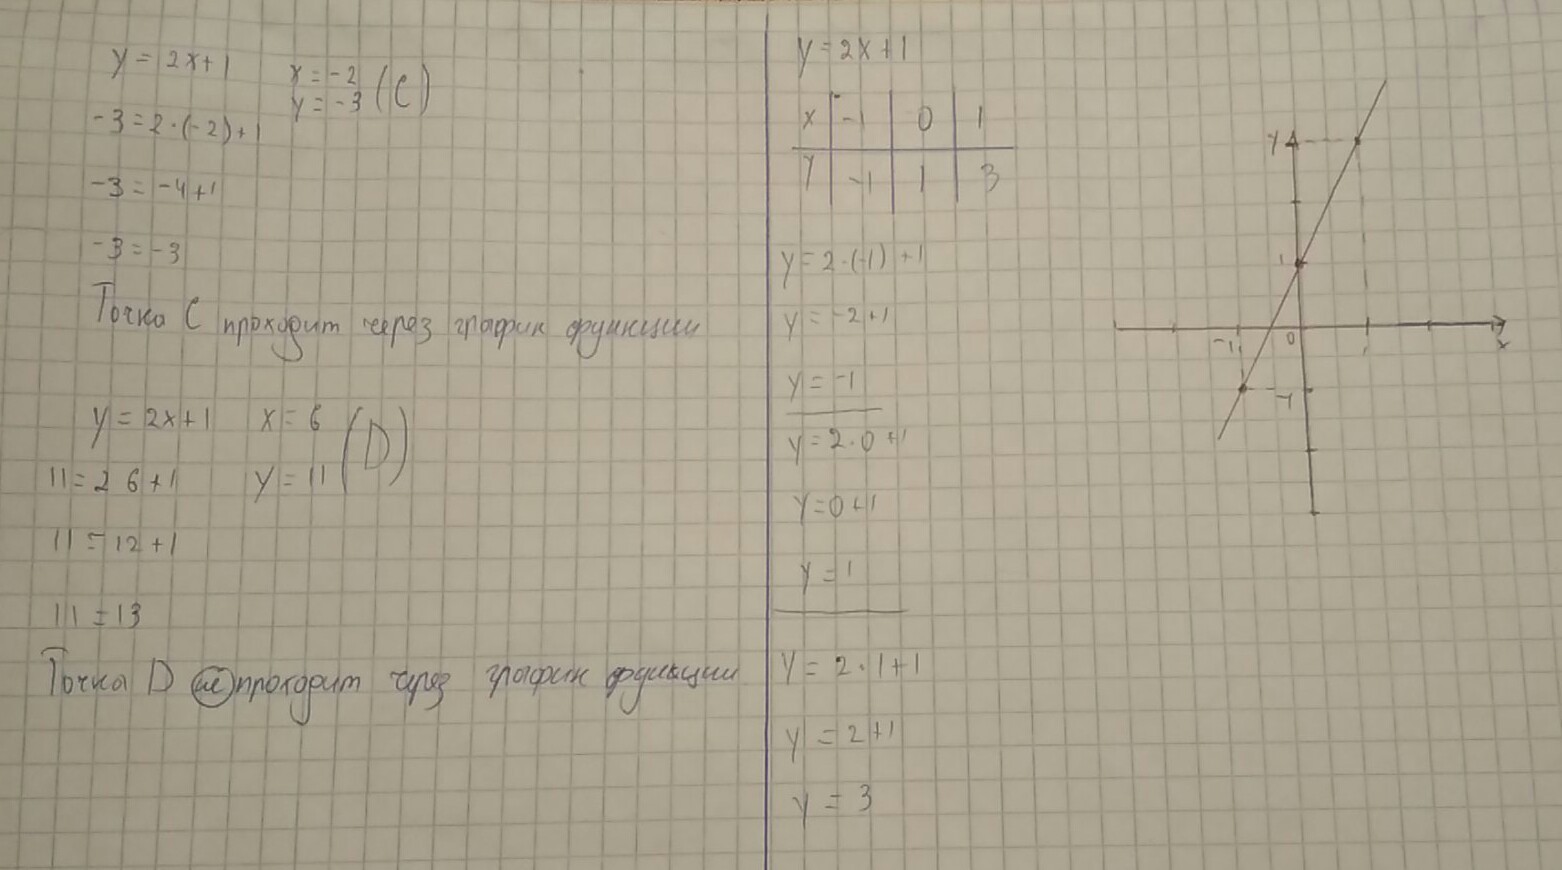 y = 2x+1 x = -2
y = -3 (C)
-3 = 2·(-2)+1
-3 = -4+1
-3 = -3
Точка C проходит через график функции
y = 2x+1 x = 6
11 = 2 6+1 y = 11 (D)
11 = 12+1
11 = 13
Точка D не проходит через график функции
y = 2x+1
x -1 0 1
y -1 1 3
y = 2·(-1)+1
y = -2+1
y = -1
y = 2·0+1
y = 0+1
y = 1
y = 2·1+1
y = 2+1
y = 3
y
1
-1 0 x
-1